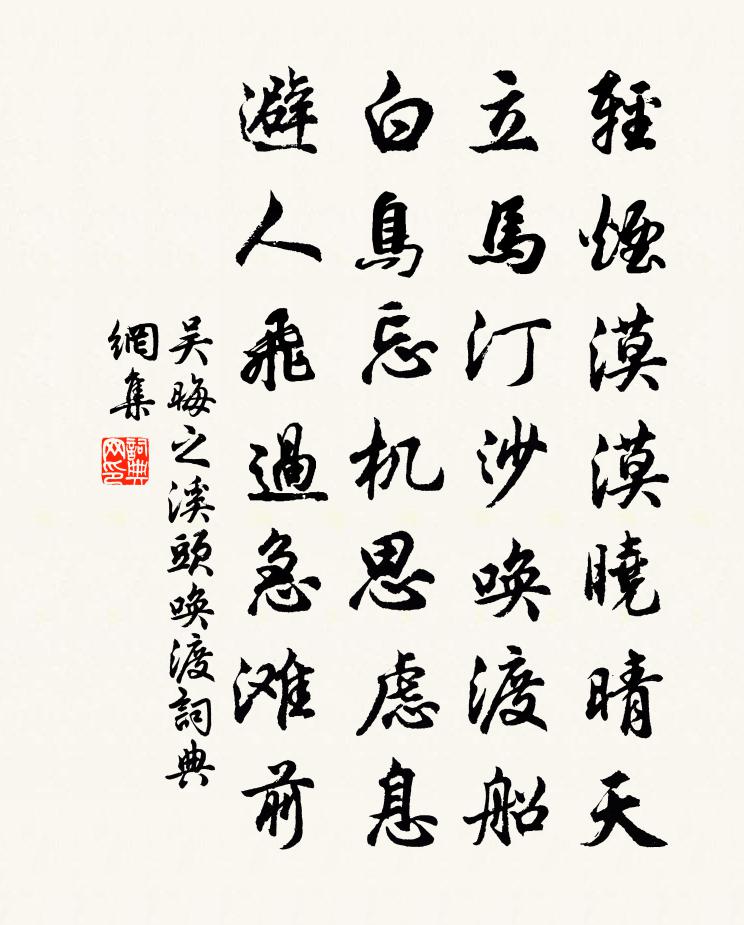 輕煙漠漠曉晴天
立馬汀沙喚渡船
白鳥忘机思慮息
避人飛過急滩前
吴晦之溪頭喚渡詞典
網集
詞典
网印